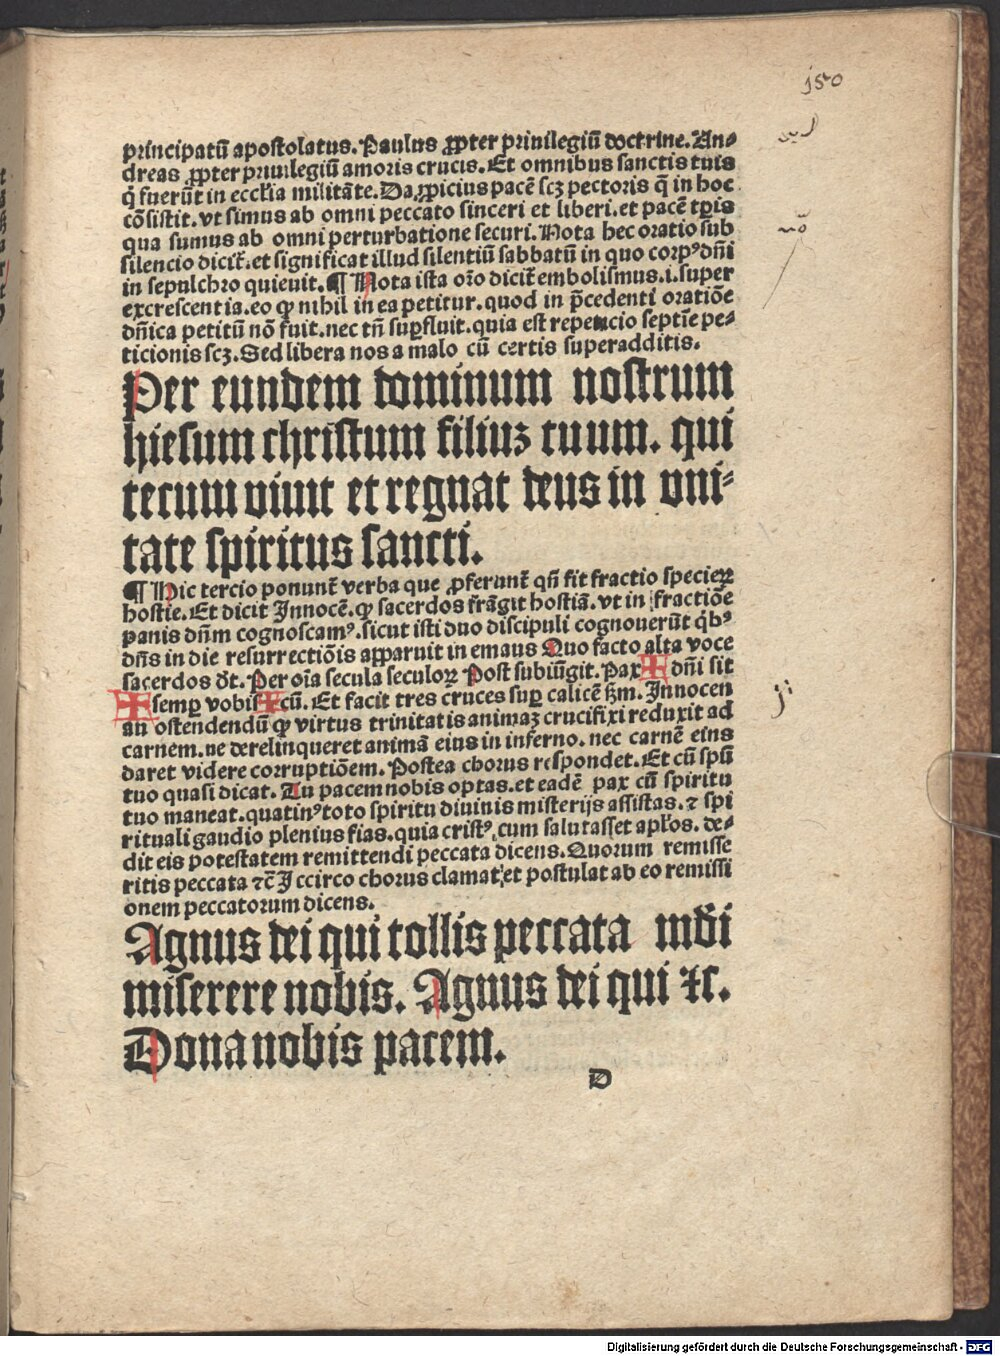 150
principatū apostolatus. Paulus ꝓpter priuilegiū doctrine. An⸗
dreas ꝓpter priuilegiū amoris crucis. Et omnibus sanctis tuis
q̇ fuerūt in eccl'ia militāte. Da ꝓpicius pacē scꝫ pectoris q̄ in hoc
cōsistit. vt simus ab omni peccato sinceri et liberi. et pacē tꝑis
qua sumus ab omni perturbatione securi. Nota hec oratio sub
silencio dicit̄. et significat illud silentiū sabbatū in quo corpꝰ dn̄i
in sepulchro quieuit. ¶ Nota ista or̄o dicit̄ embolismus. i. super
excrescentia. eo ꝙ nihil in ea petitur. quod in p̄cedenti oratiōe
dn̄ica petitū nō fuit. nec tn̄ suꝑfluit. quia est repeticio septīe pe⸗
ticionis scꝫ. Sed libera nos a malo cū certis superadditis.
Per eundem dominum nostrum
hiesum christum filiuꝫ tuum. qui
tecum viuit et regnat deus in vni⸗
tate spiritus sancti.
¶ Hic tercio ponunt̄ verba que ꝓferunt̄ qn̄ fit fractio specieꝝ
hostie. Et dicit Innocē. ꝙ sacerdos frāgit hostiā. vt in fractiōe
panis dn̄m cognoscamꝰ. sicut isti duo discipuli cognouerūt q̇bꝰ
dn̄s in die resurrectiōis apparuit in emaus Quo facto alta voce
sacerdos d̄t. Per oīa secula seculoꝝ Post subiūgit. Pax ✠ dn̄i sit
✠ semꝑ vobis ✠ cū. Et facit tres cruces suꝑ calicē ẜm. Innocen
an ostendendū ꝙ virtus trinitatis animaꝫ crucifixi reduxit ad
carnem. ne derelinqueret animā eius in inferno. nec carnē eius
daret videre corruptiōem. Postea chorus respondet. Et cū spū
tuo quasi dicat. Tu pacem nobis optas. et eadē pax cū spiritu
tuo maneat. quatinꝰ toto spiritu diuinis misterijs assistas. ⁊ spi
rituali gaudio plenius fias. quia cristꝰ cum salutasset apl'os. de⸗
dit eis potestatem remittendi peccata dicens. Quorum remisse
ritis peccata ⁊c̄ Iccirco chorus clamat et postulat ab eo remissi
onem peccatorum dicens.
Agnus dei qui tollis peccata mūdi
miserere nobis. Agnus dei qui ⁊c.
Dona nobis pacem.
D
Digitalisierung gefördert durch die Deutsche Forschungsgemeinschaft - DFG